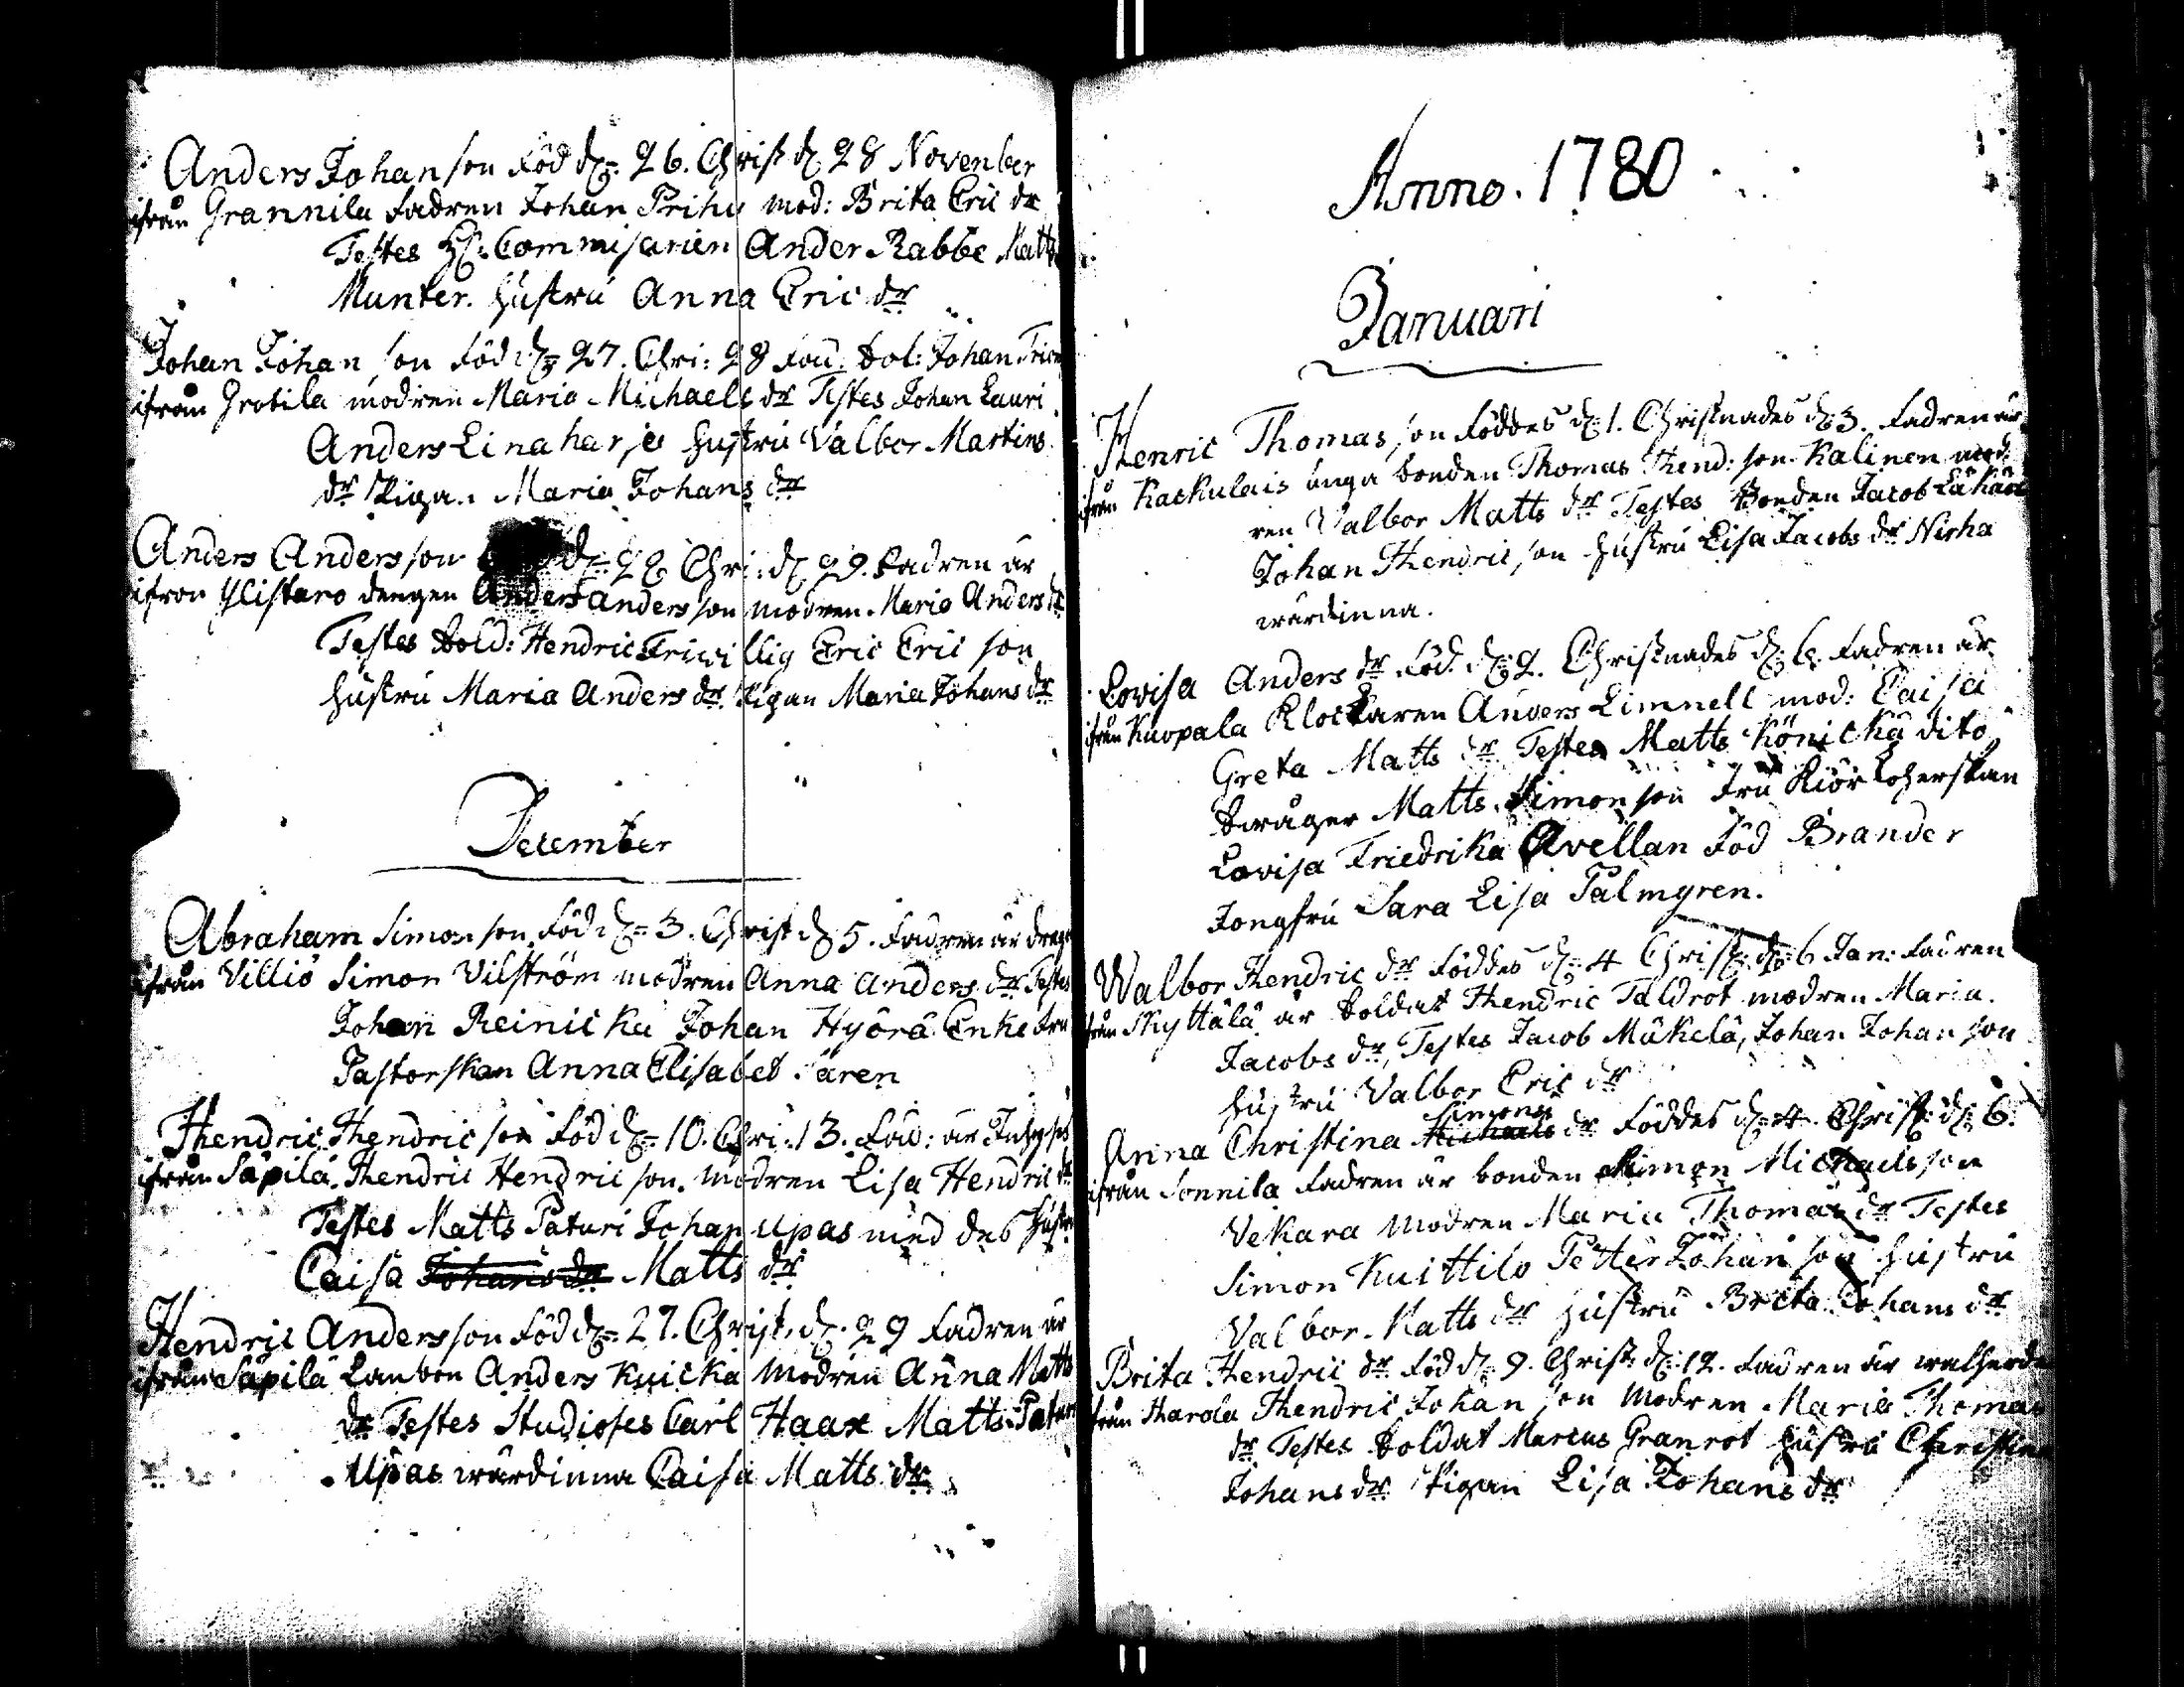 Anders Johan son Föd d: 26. Christ d 28 November
ifrån Grannila Fadren Johan Prihu mod: Brita Eric dr
Testes H: Commisarien Ander Rabbe Matts
Munter. hustru Anna Eric dr
Johan Johan son Föd d: 27. Chri: 28 Fad. Sol: Johan
ifrån Grotila modren Maria Michaels dr Testes Johan Lauri
Anders Linaharje hustru Valbor Martins
dr Pigan Maria Johans dr
Anders Anders son d: Chri: d: 29. Fadren är
ifron Ylistaro dengen Anders Anders son modren Maria Anders dr
Testes Sold: Hendric Friwillig Eric Eric son
hustru Maria Anders dr. Pigan Maria Johans dr
December
Abraham Simon son Föd d: 3. Christ d 5. Fadren är
ifrån Villiö Simon Vilström modren Anna Anders dr Testes
Johan Reinicka Johan Hyörä Enke fru
Pastorskan Anna Elisabet
Hendric Hendric son Föd d: 10. Chri: 13. Fad: är
ifrån Säpilä. Hendric Hendric son. modren Lisa Hendric dr
Testes Matts Paturi Johan Upas med des hustru
Caisa Johans dr Matts dr
Hendric Anders son Föd d: 27. Christ. d: 29 Fadren är
ifrån Säpilä Lanbon Anders Kuicka Modren Anna Matts
dr Testes Studioses Carl Haax Matts Paturi
Upas wärdinna Caisa Matts dr
Anno. 1780
Januari
Henric Thomas son Föddes d: 1. Christnades d: 3. Fadren är
ifrån Kaskulais unga bonden Thomas Hend: son Kalinen mod:
ren Valbor Matts dr Testes Bonden Jacob
Johan Hendric son hustru Lisa Jacobs dr Nirha
wärdinna.
Lovisa Anders dr Föd. d: 2. Christnades d: 6. Fadren är
ifrån Kuopala Klockaren Anders Limnell mod: Caisa
Greta Matts dr Testes Matts Könickä dito
Swåger Matts Simon son Fru
Lovisa Friedrika Avellan Föd Brander
Jongfru Sara Lisa Palmgren.
Walbor Hendric dr Föddes d: 4 Christ: d: 6 Jan: Fadren
ifrån Skyttälä är Soldat Hendric Taldrot modren Maria
Jacobs dr, Testes Jacob Mäkelä, Johan Johan son
hustru Valbor Eric dr
Simons
Anna Christina Michaels dr Föddes d: 4. Christ: d: 6.
ifrån Sonnila Fadren är bonden Simon Michaels son
Vekara Modren Maria Thomas dr Testes
Simon Kuittilo Petter Johan son hustru
Valbor Matts dr hustru Brita Johans dr
Brita Hendric dr Föd d: 9. Christ: d: 12. Fadren är
ifrån Harola Hendric Johan son Modren Maria Thomas
dr Testes Soldat Marcus Granrot hustru Christina
Johans dr Pigan Lisa Johans dr